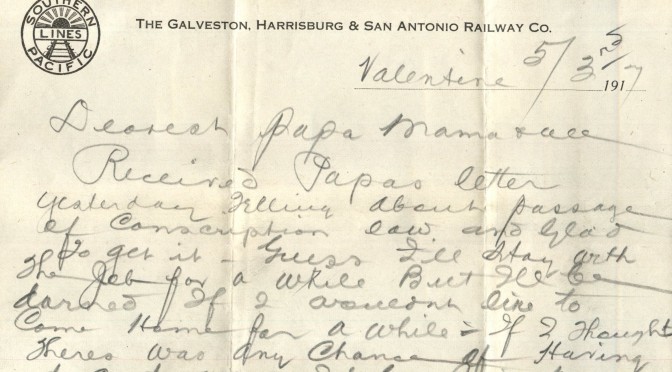 SOUTHERN PACIFIC LINES
THE GALVESTON, HARRISBURG & SAN ANTONIO RAILWAY CO.
Valentine 5/3rd/ 1917
Dearest Papa Mama & all
Received Papas letter
yesterday Telling About passage
of Conscription law and Glad
To get it - Guess I'll Stay with
The Job for a while But I'll be
darned If I wouldn like to
Come Home for a while - If I Thought
Theres was Any Chance of Having